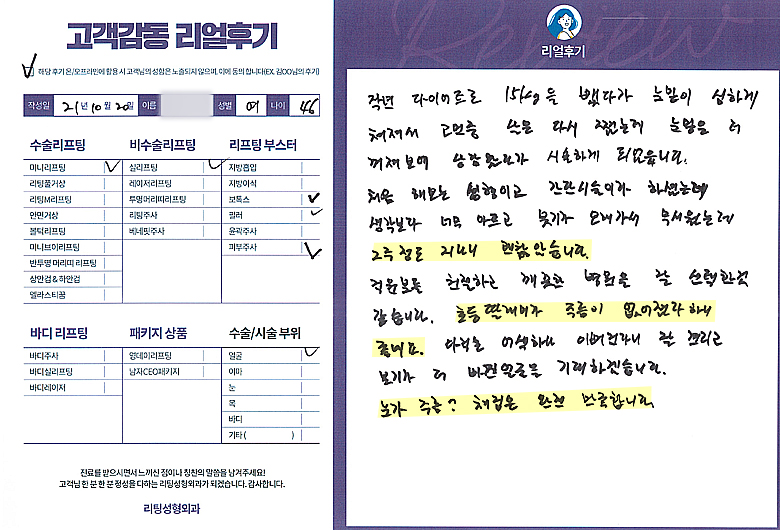 고객감동 리얼후기
해당 후기 온/오프라인에 활용 시 고객님의 성함은 노출되지 않으며, 이에 동의 합니다(EX. 김OO님의 후기)
작성일 21년 10월 20일 이름 성별 여 나이 46
수술리프팅 비수술리프팅 리프팅 부스터
미니리프팅 실리프팅 지방흡입
리팅풀거상 레이저리프팅 지방이식
리팅M리프팅 투명머리띠리프팅 보톡스
안면거상 리팅주사 필러
볼턱리프팅 베네핏주사 윤곽주사
미니브이리프팅 피부주사
반투명 머리띠 리프팅
상안검 & 하안검
엘라스티꿈
바디 리프팅 패키지 상품 수술/시술 부위
바디주사 옆데이리프팅 얼굴
바디실리프팅 남자CEO패키지 이마
바디레이저 눈
목
바디
기타 ( )
진료를 받으시면서 느끼신 점이나 칭찬의 말씀을 남겨주세요!
고객님 한 분 한 분 정성을 다하는 리팅성형외과가 되겠습니다. 감사합니다.
리팅성형외과
Review
리얼후기
작년 다이어트로 15kg을 뺐다가 눈밑이 심하게
쳐져서 고민중 쓰는 다시 쪘는데 눈밑은 더
꺼져보여 상담받으러 시술하게 되었습니다.
처음 해보는 성형이고 간단시술이라 하셨는데
생각보다 너무 아프고 붓기가 오래가서 무서웠는데
2주 정도 지나니 괜찮았습니다.
직원분들 친절하고 깨끗한 병원을 잘 선택한것
같습니다. 초등딸래미가 주름이 없어졌다 하니
좋네요. 아직은 어색하니 이뻐진거니 잘 관리고
보기가 더 바뀐얼굴을 기대하겠습니다.
눈가 주름? 쳐짐은 완전 만족합니다.